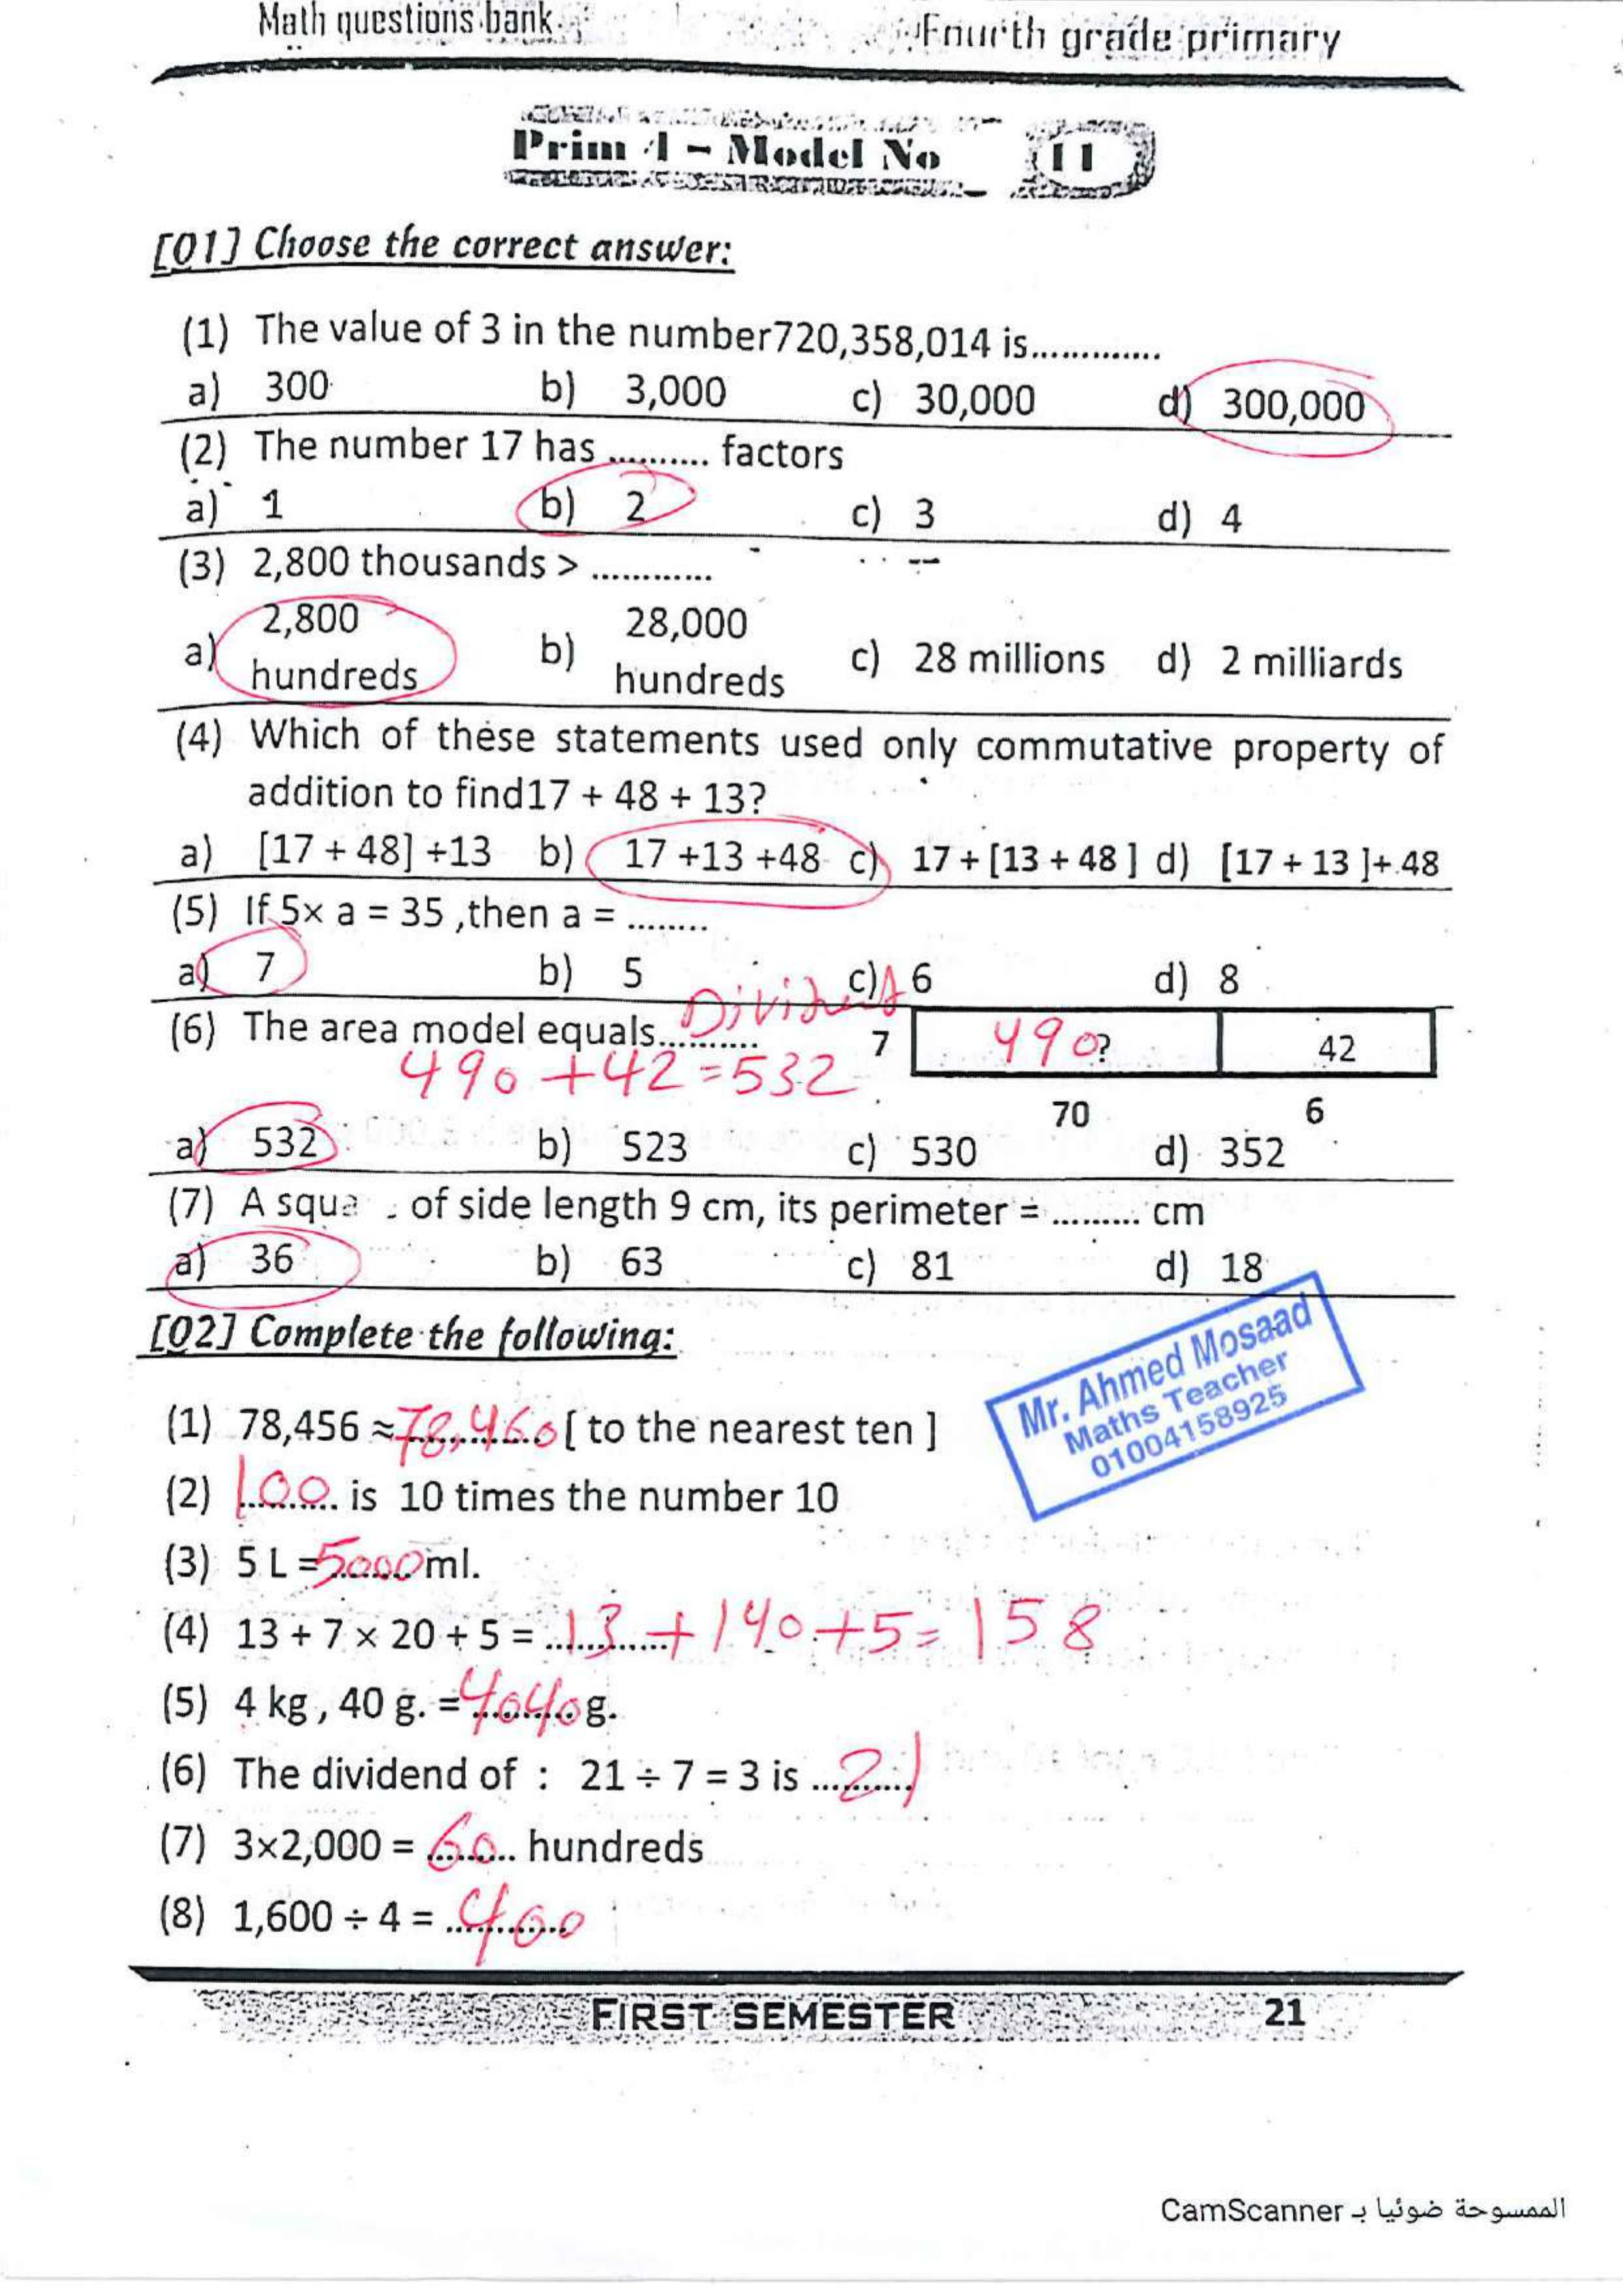 Math questions bank
Fourth grade primary
Prim 4 - Model No 11
[Q1] Choose the correct answer:
(1) The value of 3 in the number720,358,014 is.............
a) 300 b) 3,000 c) 30,000 d) 300,000
(2) The number 17 has .......... factors
a) 1 b) 2 c) 3 d) 4
(3) 2,800 thousands > ............
a) 2,800 hundreds b) 28,000 hundreds c) 28 millions d) 2 milliards
(4) Which of these statements used only commutative property of
addition to find17 + 48 + 13?
a) [17 + 48] +13 b) 17 +13 +48 c) 17 + [13 + 48 ] d) [17 + 13 ]+ 48
(5) If 5× a = 35 ,then a = ........
a) 7 b) 5 c) 6 d) 8
(6) The area model equals.......... Dividend 7 490? 42
490 + 42 = 532
70 6
a) 532 b) 523 c) 530 d) 352
(7) A squa of side length 9 cm, its perimeter = ......... cm
a) 36 b) 63 c) 81 d) 18
[Q2] Complete the following:
Mr. Ahmed Mosaad
Maths Teacher
01004158925
(1) 78,456 ≈ 78,460 [ to the nearest ten ]
(2) 100 is 10 times the number 10
(3) 5 L = 5000 ml.
(4) 13 + 7 × 20 + 5 = 13 + 140 + 5 = 158
(5) 4 kg , 40 g. = 4040 g.
(6) The dividend of : 21 ÷ 7 = 3 is 21
(7) 3×2,000 = 60 hundreds
(8) 1,600 ÷ 4 = 400
FIRST SEMESTER 21
الممسوحة ضوئيا بـ CamScanner